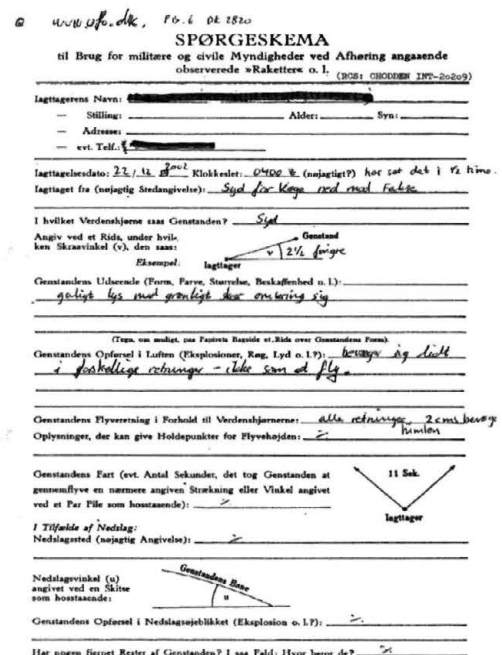 www.ufo.dk.
SPØRGESKEMA
til Brug for militære og civile Myndigheder ved Afhøring angaaende
observerede »Raketter« o. l. (RCS: CHODDEN INT-20209)
Iagttagerens Navn:
— Stilling: Alder: Syn:
— Adresse:
— evt. Telf.:
Iagttagelsesdato: 22/12 2002 Klokkeslet: 0400 (nøjagtigt?) har set det i ½ time.
Iagttaget fra (nøjagtig Stedangivelse): Syd for Køge ned mod Fakse
I hvilket Verdenshjørne saas Genstanden? Syd
Angiv ved et Rids, under hvil-
ken Skraavinkel (v), den saas:
Genstand
v 2½ fingre
Eksempel:
Iagttager
Genstandens Udseende (Form, Farve, Størrelse, Beskaffenhed o. l.):
gulligt lys med grønligt skær omkring sig
(Tegn, om muligt, paa Papirets Bagside et Rids over Genstandens Form).
Genstandens Opførsel i Luften (Eksplosioner, Røg, Lyd o. l.?): bevæger sig lidt
i forskellige retninger - ikke som et fly.
Genstandens Flyveretning i Forhold til Verdenshjørnerne: alle retninger, 2 cms bevæge
himlen
Oplysninger, der kan give Holdepunkter for Flyvehøjden:
Genstandens Fart (evt. Antal Sekunder, det tog Genstanden at
gennemflyve en nærmere angiven Strækning eller Vinkel angivet
ved et Par Pile som hosstaaende):
11 Sek.
Iagttager
I Tilfælde af Nedslag:
Nedslagssted (nøjagtig Angivelse):
Nedslagsvinkel (u)
angivet ved en Skitse
som hosstaaende:
Genstandens Bane
u
Genstandens Opførsel i Nedslagsøjeblikket (Eksplosion o. l.?):
Har nogen fjernet Rester af Genstanden? I saa Fald: Hvor beror de?